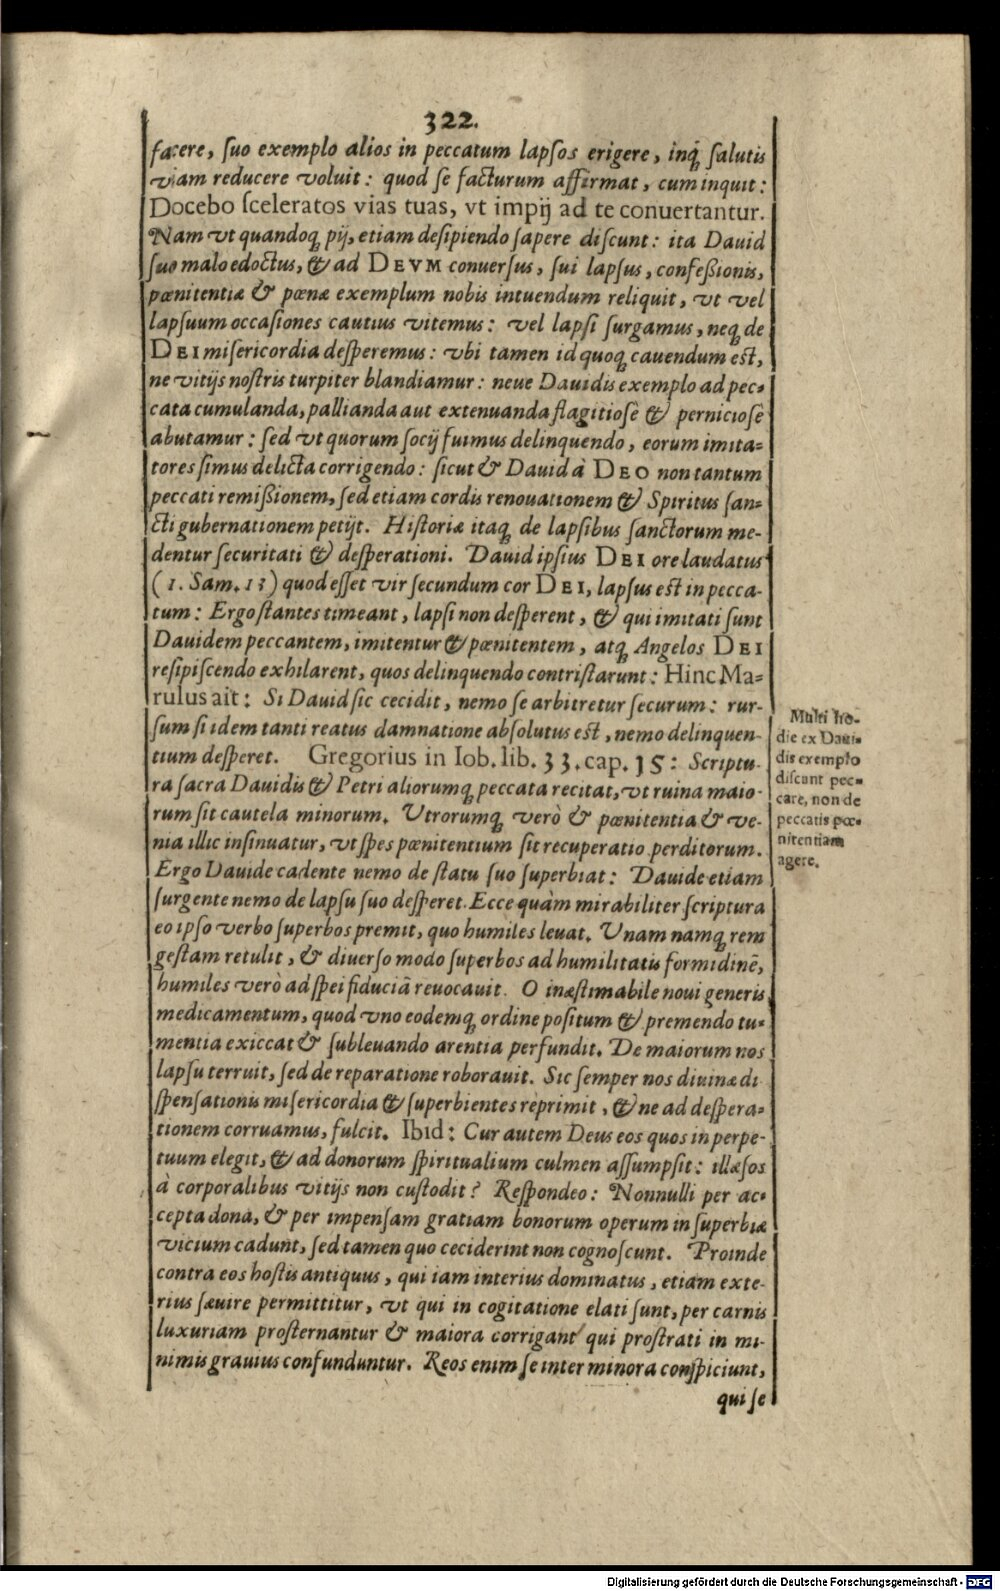 322.
facere, ſuo exemplo alios in peccatum lapſos erigere, inq́ ſalutis
viam reducere voluit: quod ſe facturum affirmat, cum inquit:
Docebo ſceleratos vias tuas, vt impij ad te conuertantur.
Nam vt quandoq́ pij, etiam deſipiendo ſapere diſcunt: ita Dauid
ſuo malo edoctus, & ad DEVM conuerſus, ſui lapſus, confeßionis,
pœnitentiæ & pœnæ exemplum nobis intuendum reliquit, vt vel
lapſuum occaſiones cautius vitemus: vel lapſi ſurgamus, neq́ de
DEI miſericordia deſperemus: vbi tamen id quoq́ cauendum eſt,
ne vitijs noſtris turpiter blandiamur: neue Dauidis exemplo ad pec-
cata cumulanda, pallianda aut extenuanda flagitioſè & pernicioſè
abutamur: ſed vt quorum ſocij fuimus delinquendo, eorum imita-
tores ſimus delicta corrigendo: ſicut & Dauid à DEO non tantum
peccati remißionem, ſed etiam cordis renouationem & Spiritus ſan-
cti gubernationem petijt. Hiſtoriæ itaq́ de lapſibus ſanctorum me-
dentur ſecuritati & deſperationi. Dauid ipſius DEI ore laudatus
(1. Sam. 13) quod eſſet vir ſecundum cor DEI, lapſus eſt in pecca-
tum: Ergo ſtantes timeant, lapſi non deſperent, & qui imitati ſunt
Dauidem peccantem, imitentur & pœnitentem, atq́ Angelos DEI
reſipiſcendo exhilarent, quos delinquendo contriſtarunt: Hinc Ma-
rulus ait: Si Dauid ſic cecidit, nemo ſe arbitretur ſecurum: rur-
ſum ſi idem tanti reatus damnatione abſolutus eſt, nemo delinquen-
tium deſperet. Gregorius in Iob. lib. 33. cap. 15: Scriptu-
ra ſacra Dauidis & Petri aliorumq́ peccata recitat, vt ruina maio-
rum ſit cautela minorum. Utrorumq́ verò & pœnitentia & ve-
nia illic inſinuatur, vt ſpes pœnitentium ſit recuperatio perditorum.
Ergo Dauide cadente nemo de ſtatu ſuo ſuperbiat: Dauide etiam
ſurgente nemo de lapſu ſuo deſperet. Ecce quàm mirabiliter ſcriptura
eo ipſo verbo ſuperbos premit, quo humiles leuat. Unam namq́ rem
geſtam retulit, & diuerſo modo ſuperbos ad humilitatis formidinē,
humiles verò ad ſpei fiduciā reuocauit. O inæſtimabile noui generis
medicamentum, quod vno eodemq́ ordine poſitum & premendo tu-
mentia exiccat & ſubleuando arentia perfundit. De maiorum nos
lapſu terruit, ſed de reparatione roborauit. Sic ſemper nos diuinæ di
ſpenſationis miſericordia & ſuperbientes reprimit, & ne ad deſpera-
tionem corruamus, fulcit. Ibid: Cur autem Deus eos quos in perpe-
tuum elegit, & ad donorum ſpiritualium culmen aſſumpſit: illæſos
à corporalibus vitijs non cuſtodit? Reſpondeo: Nonnulli per ac-
cepta dona, & per impenſam gratiam bonorum operum in ſuperbiæ
vicium cadunt, ſed tamen quo ceciderint non cognoſcunt. Proinde
contra eos hoſtis antiquus, qui iam interius dominatus, etiam exte-
rius ſæuire permittitur, vt qui in cogitatione elati ſunt, per carnis
luxuriam proſternantur & maiora corrigant qui proſtrati in mi-
nimis grauius confunduntur. Reos enim ſe inter minora conſpiciunt,
qui ſe
Multi ho-
die ex Daui-
dis exemplo
diſcunt pec-
care, non de
peccatis pœ-
nitentiam
agere.
Digitalisierung gefördert durch die Deutsche Forschungsgemeinschaft - DFG